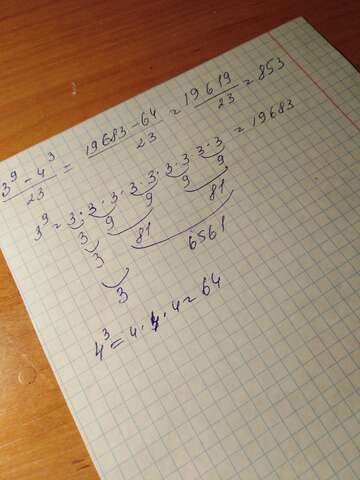 (3⁹ - 4³)/23 = (19683 - 64)/23 = 19619/23 = 853
3⁹ = 3·3·3·3·3·3·3·3·3 = 19683
3 9 9 9 9
3 81 81
3 6561
4³ = 4·4·4 = 64